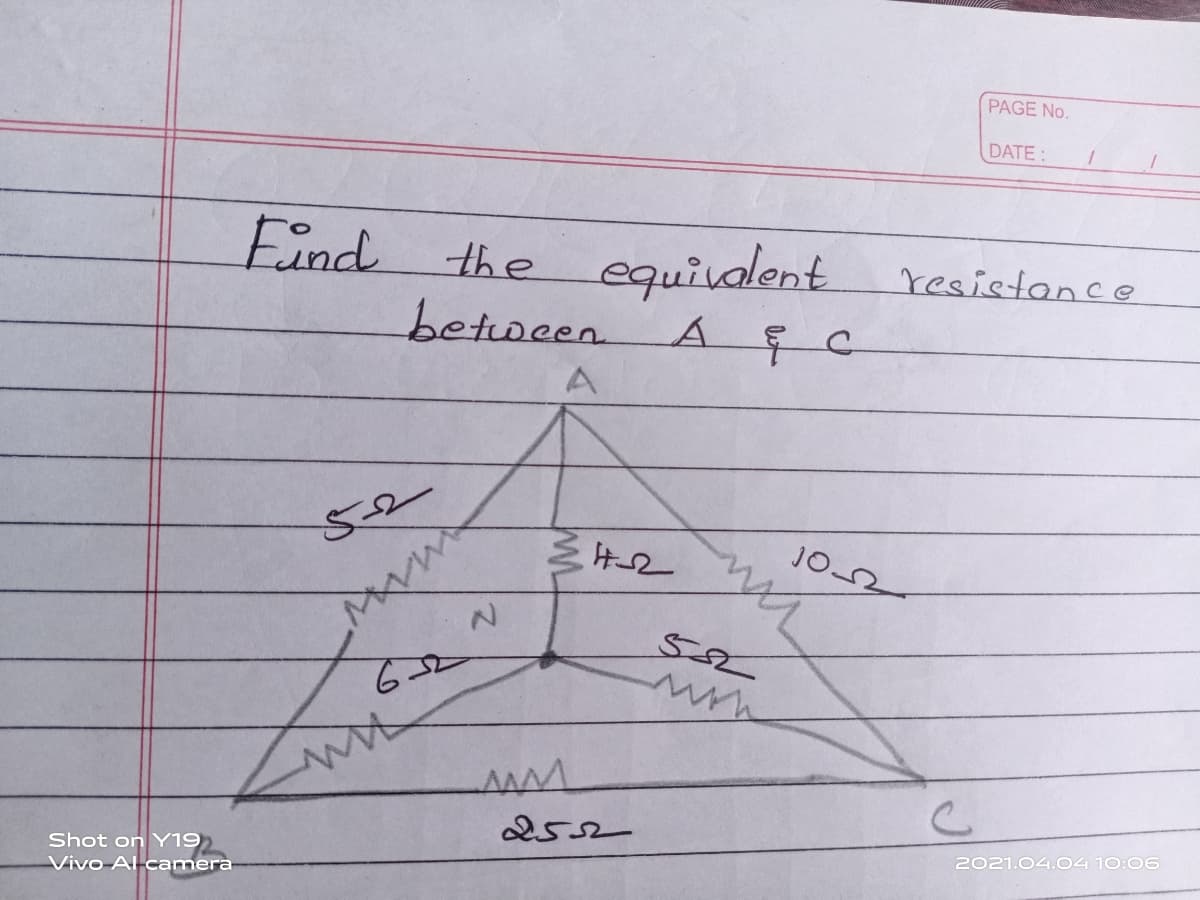 PAGE No.
DATE : / /
Find the equivalent resistance
between A & C
A
5Ω
4Ω
10Ω
N
6Ω
5Ω
25Ω
B
C
Shot on Y19
Vivo AI camera
2021.04.04 10:06